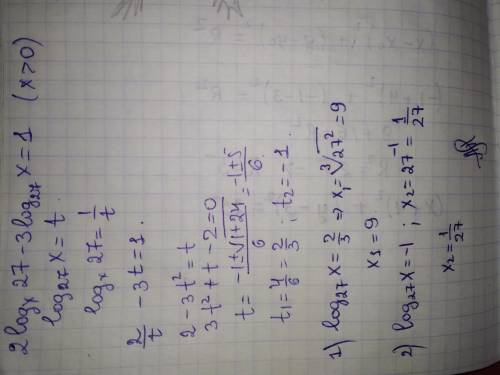 2 log_x 27 - 3 log_27 x = 1 (x>0)
log_27 x = t
log_x 27 = 1/t
2/t - 3t = 1.
2 - 3t² = t
3t² + t - 2 = 0
t = (-1±√(1+24))/6 = (-1±5)/6
t₁ = 4/6 = 2/3 ; t₂ = -1.
1) log_27 x = 2/3 ⇒ x₁ = ∛27² = 9
x₁ = 9
2) log_27 x = -1 ; x₂ = 27⁻¹ = 1/27
x₂ = 1/27